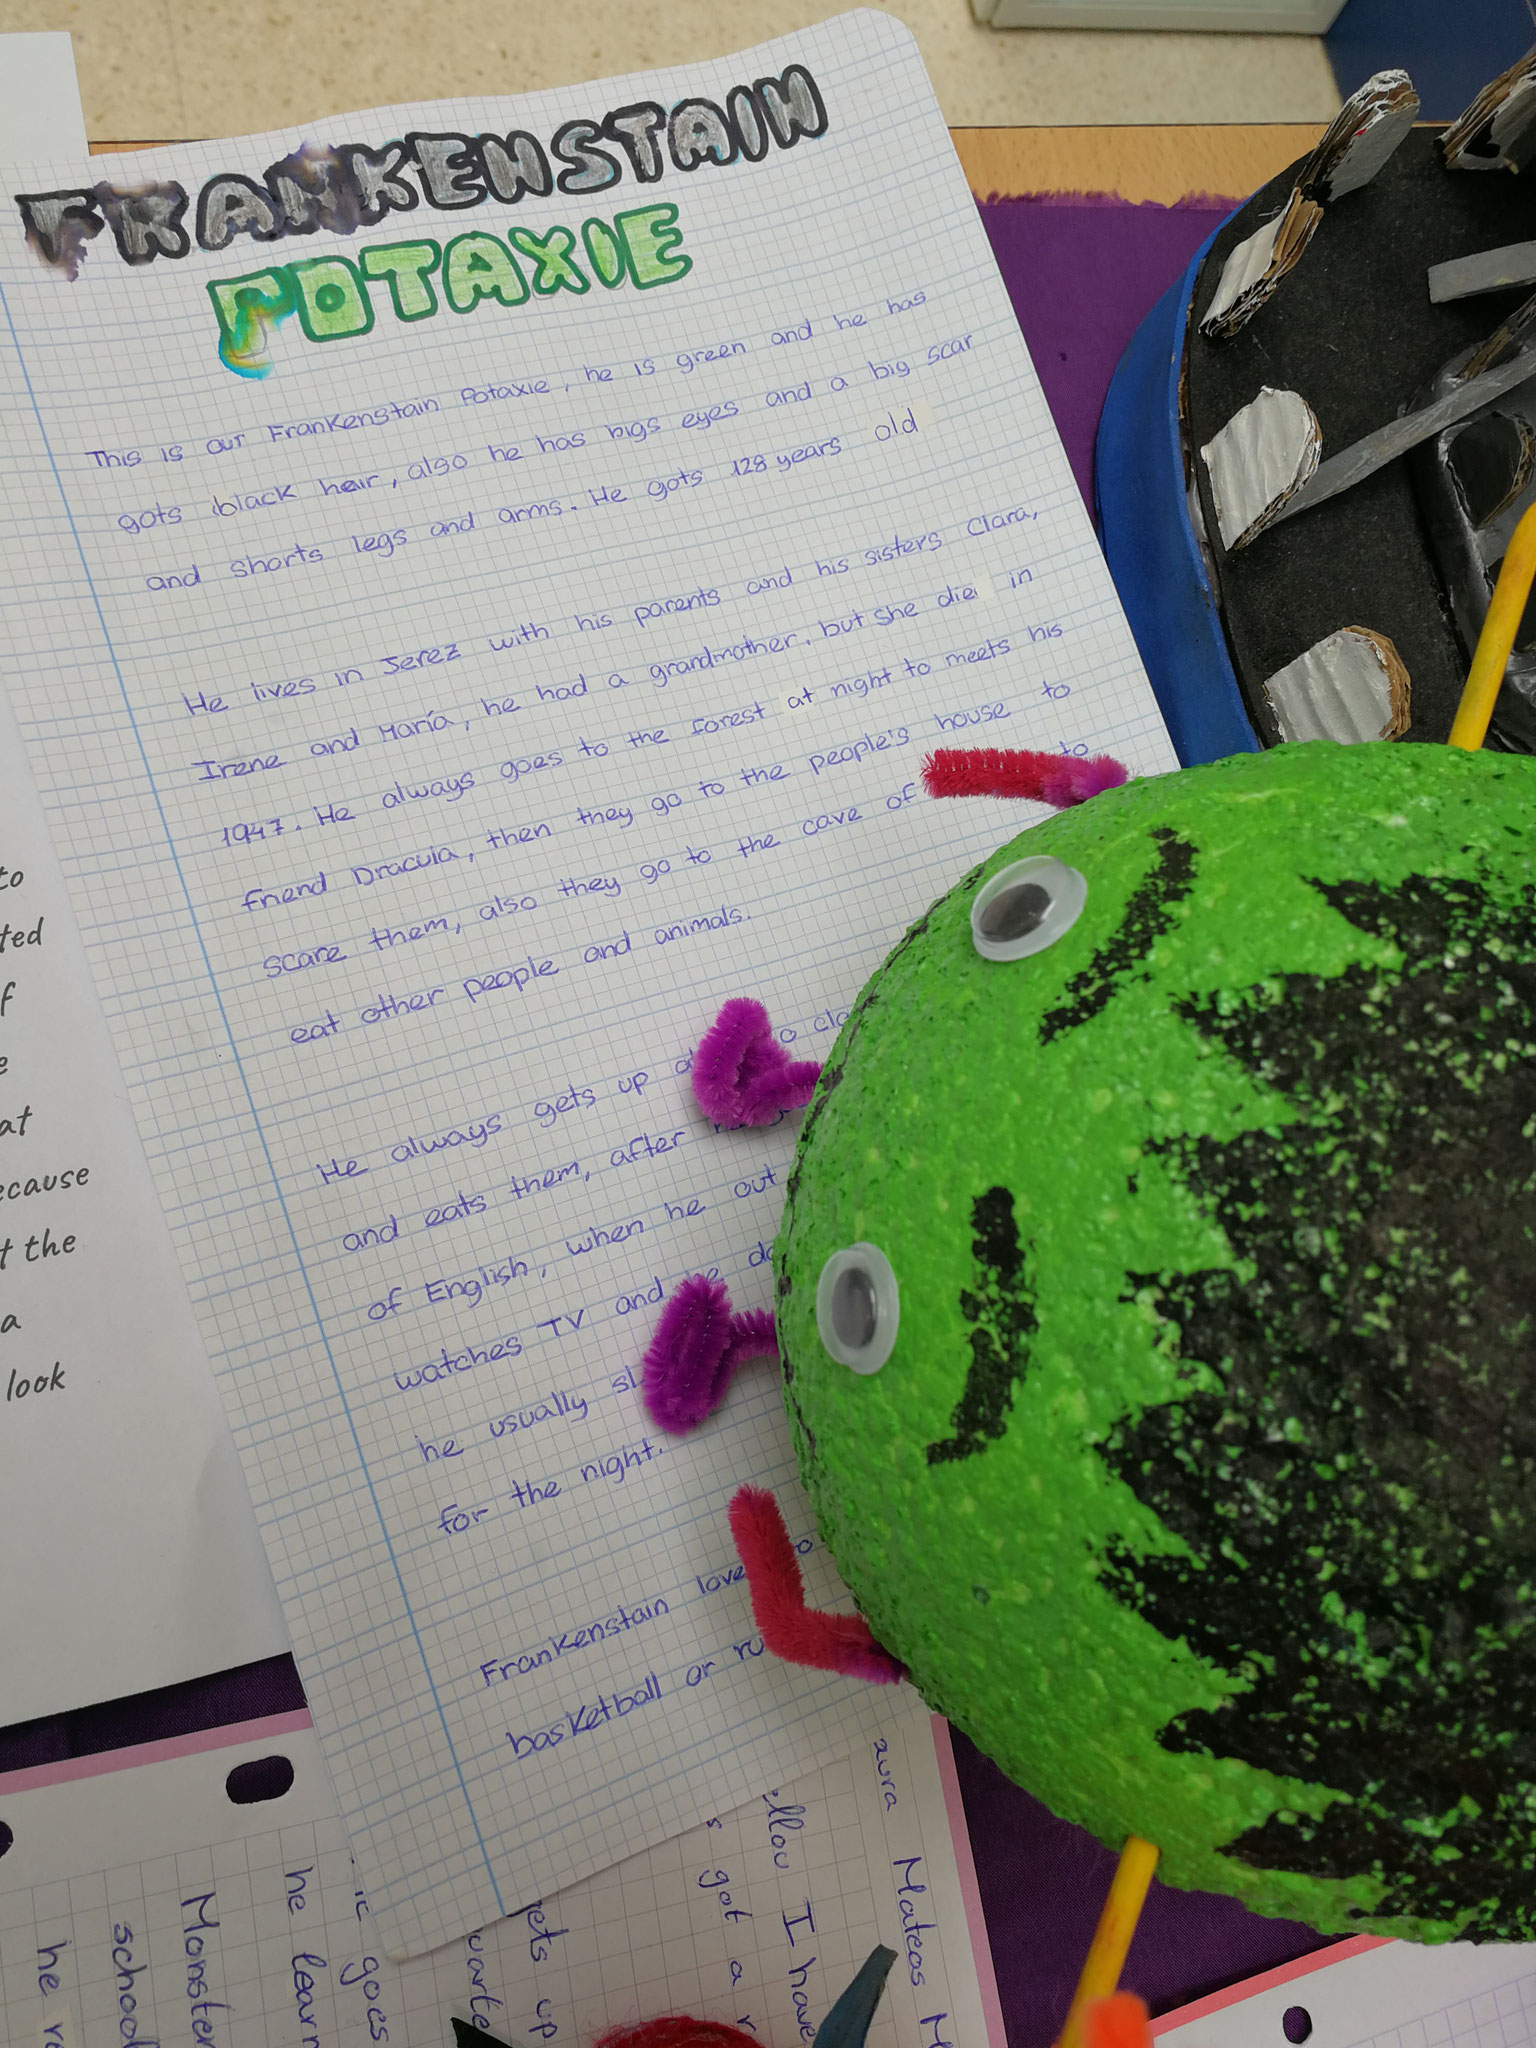 FRANKENSTAIN
POTAXIE
This is our Frankenstain Potaxie, he is green and he has
gots black hair, also he has bigs eyes and a big scar
and shorts legs and arms. He gots 128 years old
He lives in Jerez with his parents and his sisters Clara,
Irene and María, he had a grandmother, but she die in
1947. He always goes to the forest at night to meets his
friend Dracula, then they go to the people's house to
scare them, also they go to the cave of to
eat other people and animals.
He always gets up
and eats them, after
of English, when he out
watches TV and he
he usually
for the night.
Frankenstain love
basketball or
to
ted
f
e
at
ecause
t the
a
look
Mateos M
I have
s got a r
ets up
goes
he learn
Monster
school
he re